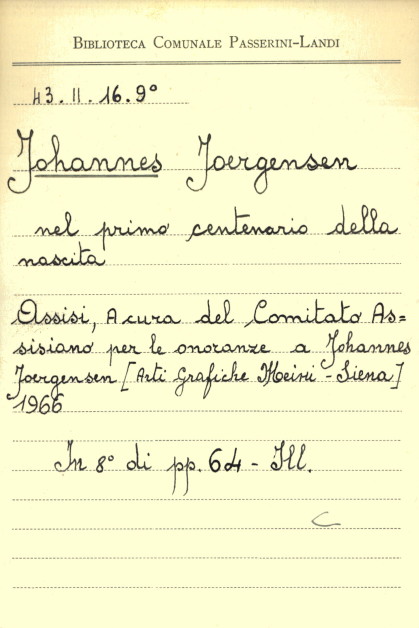 BIBLIOTECA COMUNALE PASSERINI-LANDI
43.II.16.9°
Johannes Joergensen
nel primo centenario della
nascita
Assisi, A cura del Comitato As=
sisiano per le onoranze a Johannes
Joergensen [Arti Grafiche Meini - Siena]
1966
In 8° di pp. 64 - Ill.
C